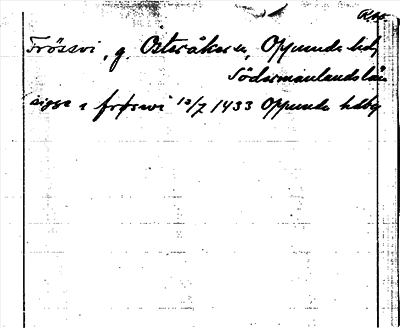 Frössvi, g. Österåker sn, Oppunda hd,
Södermanlands län
sigge i frøswi 12/7 1433 Oppunda hdbg